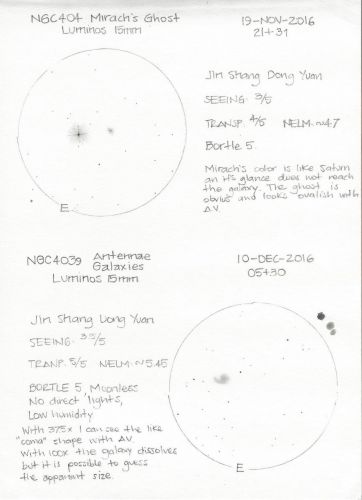 NGC404 Mirach's Ghost
Luminos 15mm
19-NOV-2016
21+31
Jin Shang Dong Yuan
SEEING 3/5
TRANSP. 4/5 NELM ~4.7
Bortle 5.
Mirach's color is like Saturn
an it's glance does not reach
the galaxy. The ghost is
obvius and looks ovalish with
AV
E
NGC4039 Antennae
Galaxies
Luminos 15mm
10-DEC-2016
05+30
Jin Shang Dong Yuan
SEEING
TRANSP. 5/5 NELM ~5.45
BORTLE 5, Moonless
No direct lights,
Low humidity
With 375x I can see the like
"coma" shape with AV.
With 100x the galaxy dissolves
but it is possible to guess
the apparent size.
E